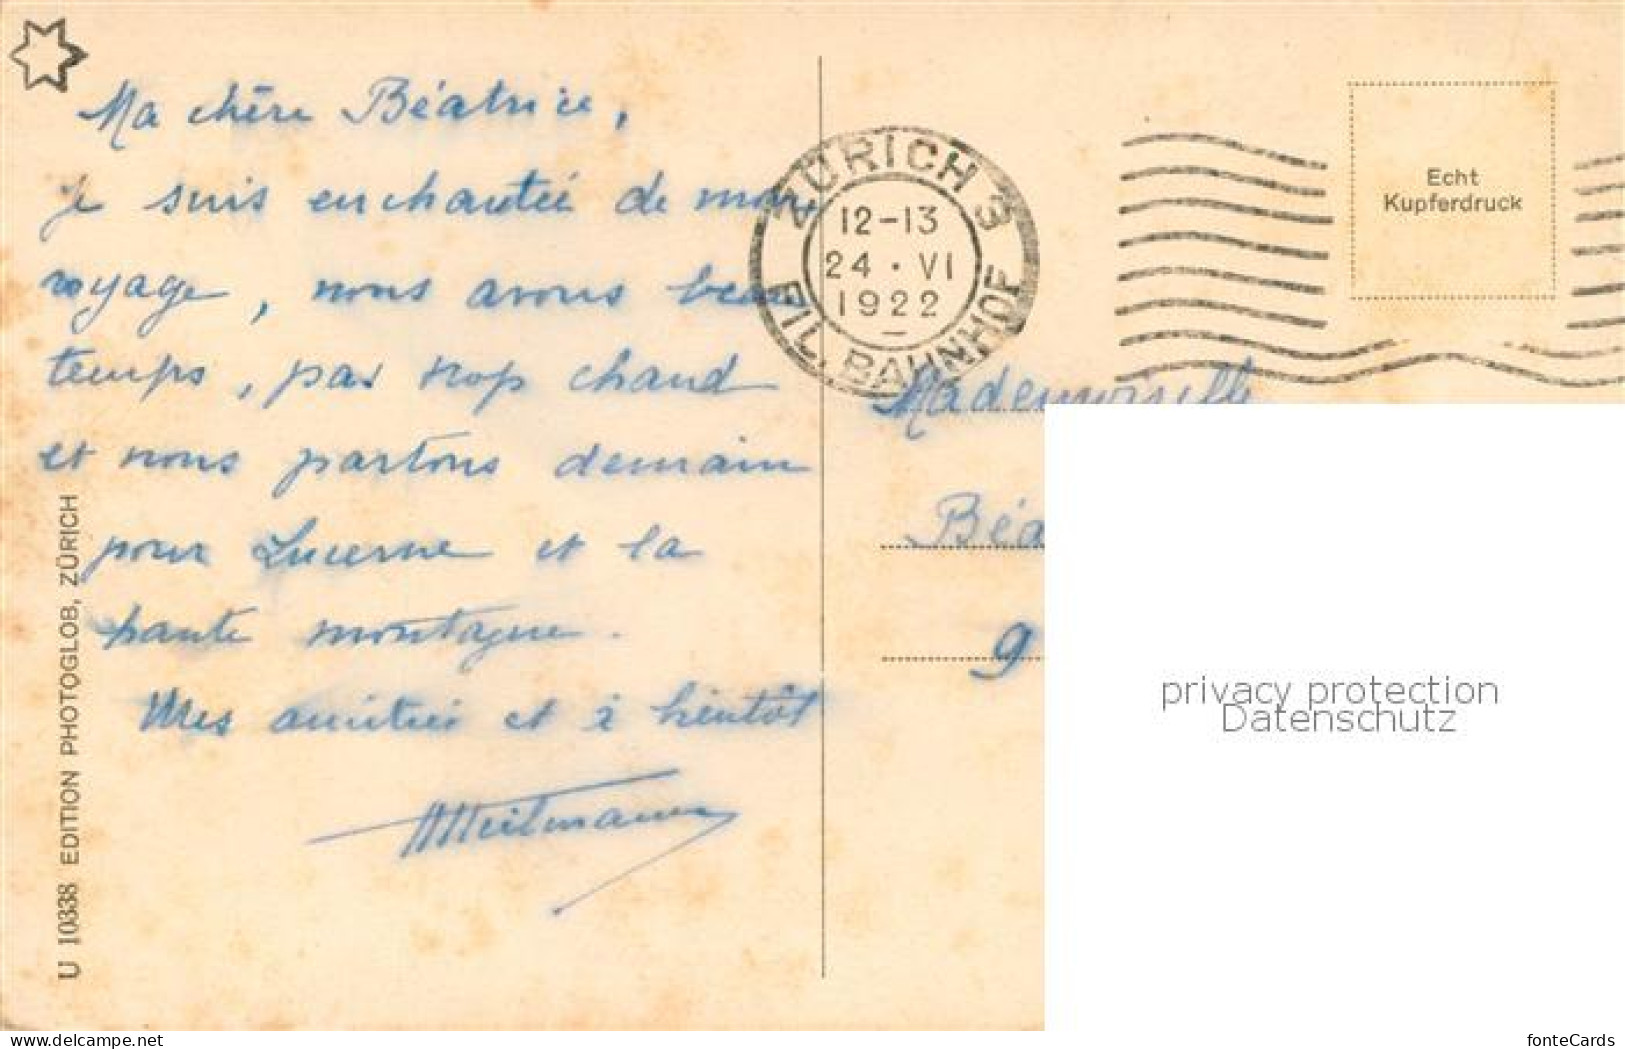 Ma chère Béatrice,
je suis enchantée de mon
voyage, nous avons beau
temps, pas trop chaud
et nous partons demain
pour Lucerne et la
haute montagne.
Mes amitiés et à bientôt
U 10338 EDITION PHOTOGLOB, ZÜRICH
ZÜRICH 3
12-13
24 · VI
1922
FIL. BAHNHOF
Echt
Kupferdruck
Mademoiselle
Béa
9
privacy protection
Datenschutz
www.delcampe.net
fonteCards